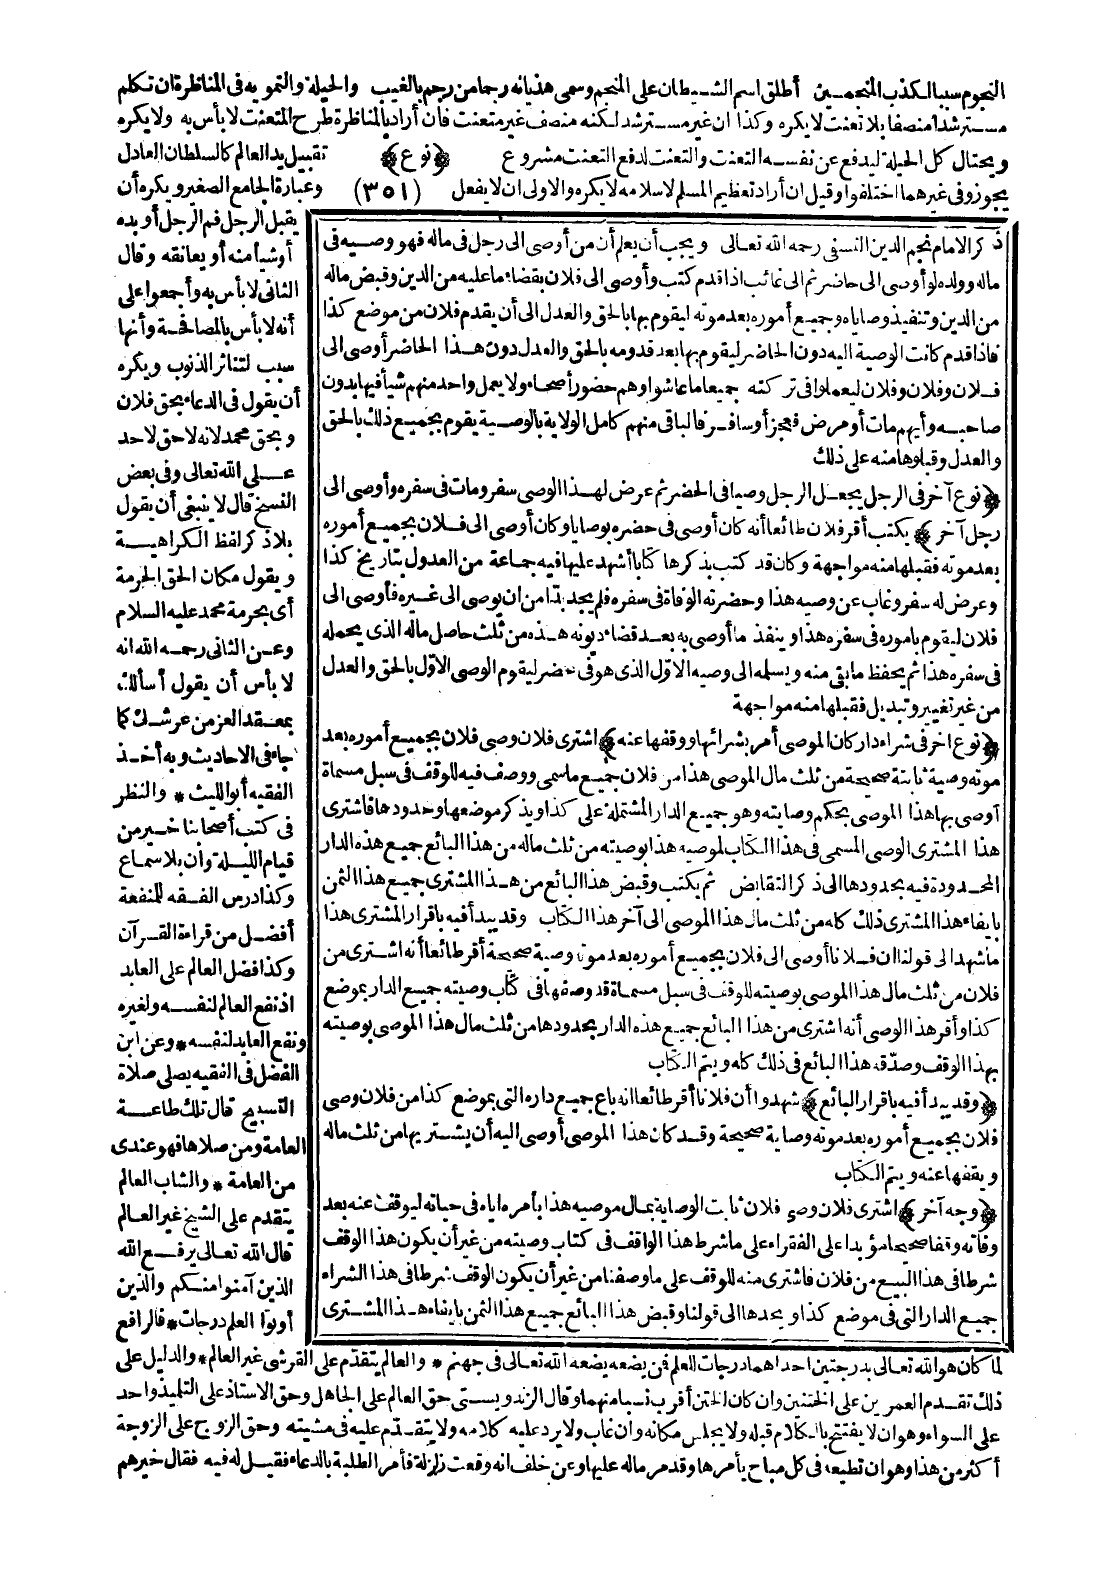 النجوم سببا لكذب المنجمين أطلق اسم الشيطان على المنجم وسمى هذيانه رجما من رجم بالغيب والحيلة والتمويه في المناظرة ان تكلم
مسترشدا منصفا بلا تعنت لا يكره وكذا ان غير مسترشد لكنه منصف غير متعنت فان أراد بالمناظرة طرح المتعنت لا بأس به ولا يكره
ويحتال كل الحيلة ليدفع عن نفسه التعنت والتعنت لدفع التعنت مشروع ﴿نوع﴾ تقبيل يد العالم كالسلطان العادل
يجوز وفي غيرهما اختلفوا وقيل ان أراد تعظيم المسلم لاسلامه لا يكره والاولى ان لا يفعل (٣٥١) وعبارة الجامع الصغير ويكره أن
يقبل الرجل فم الرجل أو يده
أو شيأ منه أو يعانقه وقال
الثاني لا بأس به وأجمعوا على
أنه لا بأس بالمصافحة وأنها
سبب لتناثر الذنوب ويكره
أن يقول في الدعاء بحق فلان
وبحق محمد لانه لا حق لاحد
على الله تعالى وفي بعض
النسخ قال لا ينبغي أن يقول
بلا ذكر لفظ الكراهية
ويقول مكان الحق الحرمة
أي بحرمة محمد عليه السلام
وعن الثاني رحمه الله انه
لا بأس أن يقول أسألك
بمعقد العز من عرشك كما
جاء في الاحاديث وبه أخذ
الفقيه أبو الليث * والنظر
في كتب أصحابنا خير من
قيام الليلة وان بلا سماع
وكذا درس الفقه للمنفعة
أفضل من قراءة القرآن
وكذا فضل العالم على العابد
اذ نفع العالم لنفسه ولغيره
ونفع العابد لنفسه * وعن ابن
الفضل في الفقيه يصلي صلاة
التسبيح قال تلك طاعة
العامة ومن صلاها فهو عندي
من العامة * والشاب العالم
يتقدم على الشيخ غير العالم
قال الله تعالى يرفع الله
الذين آمنوا منكم والذين
أوتوا العلم درجات * فالرافع
ذكر الامام نجم الدين النسفي رحمه الله تعالى ويجب أن يعلم أن من أوصى الى رجل في ماله فهو وصيه في
ماله وولده لو أوصى الى حاضر ثم الى غائب اذا قدم كتب وأوصى الى فلان بقضاء ما عليه من الدين وقبض ماله
من الدين وتنفيذ وصاياه وجميع أموره بعد موته ليقوم بها بالحق والعدل الى أن يقدم فلان من موضع كذا
فاذا قدم كانت الوصية اليه دون الحاضر ليقوم بها بعد قدومه بالحق والعدل دون هذا الحاضر أوصى الى
فلان وفلان وفلان ليعملوا في تركته جميعا ما عاشوا وهم حضور أصحاء ولا يعمل واحد منهم شيأ فيها بدون
صاحبه وأيهم مات أو مرض فعجز أو سافر فالباقي منهم كامل الولاية بالوصية يقوم بجميع ذلك بالحق
والعدل وقبلوها منه على ذلك
﴿نوع آخر في الرجل يجعل الرجل وصيا في الحضر ثم عرض لهذا الوصي سفر ومات في سفره وأوصى الى
رجل آخر﴾ يكتب أقر فلان طائعا أنه كان أوصى في حضره بوصايا وكان أوصى الى فلان بجميع أموره
بعد موته فقبلها منه مواجهة وكان قد كتب بذكرها كتابا أشهد عليها فيه جماعة من العدول بتاريخ كذا
وعرض له سفر وغاب عن وصيه هذا وحضرته الوفاة في سفره فلم يجد بدا من ان يوصي الى غيره فأوصى الى
فلان ليقوم باموره في سفره هذا وينفذ ما أوصى به بعد قضاء ديونه هذه من ثلث حاصل ماله الذي يحمله
في سفره هذا ثم يحفظ ما بقي منه ويسلمه الى وصيه الاول الذي هو في حضر ليقوم الوصي الاول بالحق والعدل
من غير تغيير وتبديل فقبلها منه مواجهة
﴿نوع اخر في شراء دار كان الموصي أمر بشرائها ووقفها عنه﴾ اشترى فلان وصي فلان بجميع أموره بعد
موته وصية ثابتة صحيحة من ثلث مال الموصي هذا من فلان جميع ما سمي ووصف فيه للوقف في سبل مسماة
أوصى بها هذا الموصي بحكم وصايته وهو جميع الدار المشتملة على كذا ويذكر موضعها وحدودها فاشترى
هذا المشتري الوصي المسمى في هذا الكتاب لموصيه هذا بوصيته من ثلث ماله من هذا البائع جميع هذه الدار
المحدودة فيه بحدودها الى ذكر التقابض ثم يكتب وقبض هذا البائع من هذا المشتري جميع هذا الثمن
بايفاء هذا المشتري ذلك كله من ثلث مال هذا الموصي الى آخر هذا الكتاب وقد يبدأ فيه باقرار المشتري هذا
ما شهد الى قولنا ان فلانا أوصى الى فلان بجميع أموره بعد موته وصية صحيحة أقر طائعا أنه اشترى من
فلان من ثلث مال هذا الموصي بوصيته للوقف في سبل مسماة قد وصفها في كتاب وصيته جميع الدار بموضع
كذا وأقر هذا الوصي أنه اشترى من هذا البائع جميع هذه الدار بحدودها من ثلث مال هذا الموصي بوصيته
بهذا الوقف وصدقه هذا البائع في ذلك كله ويتم الكتاب
﴿وقد يبدأ فيه باقرار البائع﴾ شهدوا أن فلانا أقر طائعا انه باع جميع داره التي بموضع كذا من فلان وصي
فلان بجميع أموره بعد موته وصاية صحيحة وقد كان هذا الموصي أوصى اليه أن يشتريها من ثلث ماله
ويقفها عنه ويتم الكتاب
﴿وجه آخر﴾ اشترى فلان وصي فلان ثابت الوصاية بمال موصيه هذا بأمره اياه في حياته ليوقف عنه بعد
وفاته وقفا صحيحا مؤبدا على الفقراء على ما شرط هذا الواقف في كتاب وصيته من غير أن يكون هذا الوقف
شرطا في هذا البيع من فلان فاشترى منه للوقف على ما وصفنا من غير أن يكون الوقف شرطا في هذا الشراء
جميع الدار التي في موضع كذا ويحدها الى قولنا وقبض هذا البائع جميع هذا الثمن بايفاء هذا المشتري
لما كان هو الله تعالى بدرجتين احداهما درجات للعلم فمن يضعه يضعه الله تعالى في جهنم * والعالم يتقدم على القرشي غير العالم * والدليل على
ذلك تقدم العمرين على الختنين وان كان الختن أقرب نسبا منهما وقال الزندويستي حق العالم على الجاهل وحق الاستاذ على التلميذ واحد
على السواء وهو ان لا يفتتح بالكلام قبله ولا يجلس مكانه وان غاب ولا يرد عليه كلامه ولا يتقدم عليه في مشيته وحق الزوج على الزوجة
أكثر من هذا وهو ان تطيعه في كل مباح يأمرها وقدم ماله عليها وعن خلف انه وقعت زلزلة فأمر الطلبة بالدعاء فقيل له فيه فقال خيرهم